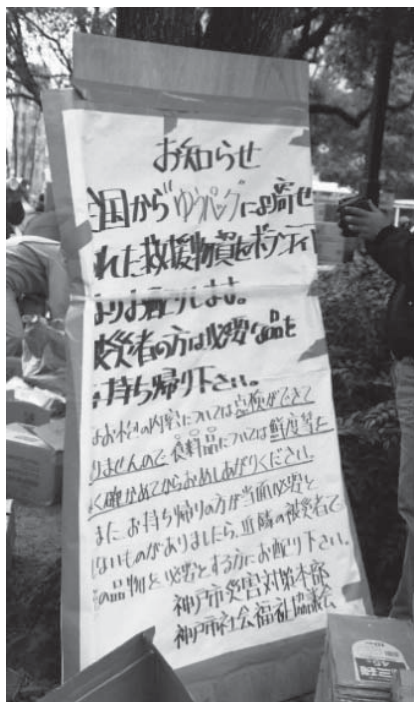 お知らせ
国から"ゆうパック"によ寄せ
れた救援物資をボランティ
よりお配りします。
災者の方は必要な品を
持ち帰り下さい。
なお、お品の内容については点検ができて
りませんので食料品については鮮度等を
く確かめてからおめしあがりください。
また、お持ち帰りの方が当面必要と
ないものがありましたら、近隣の被災者で
の品物を必要とする方にお配り下さい。
神戸市災害対策本部
神戸市社会福祉協議会